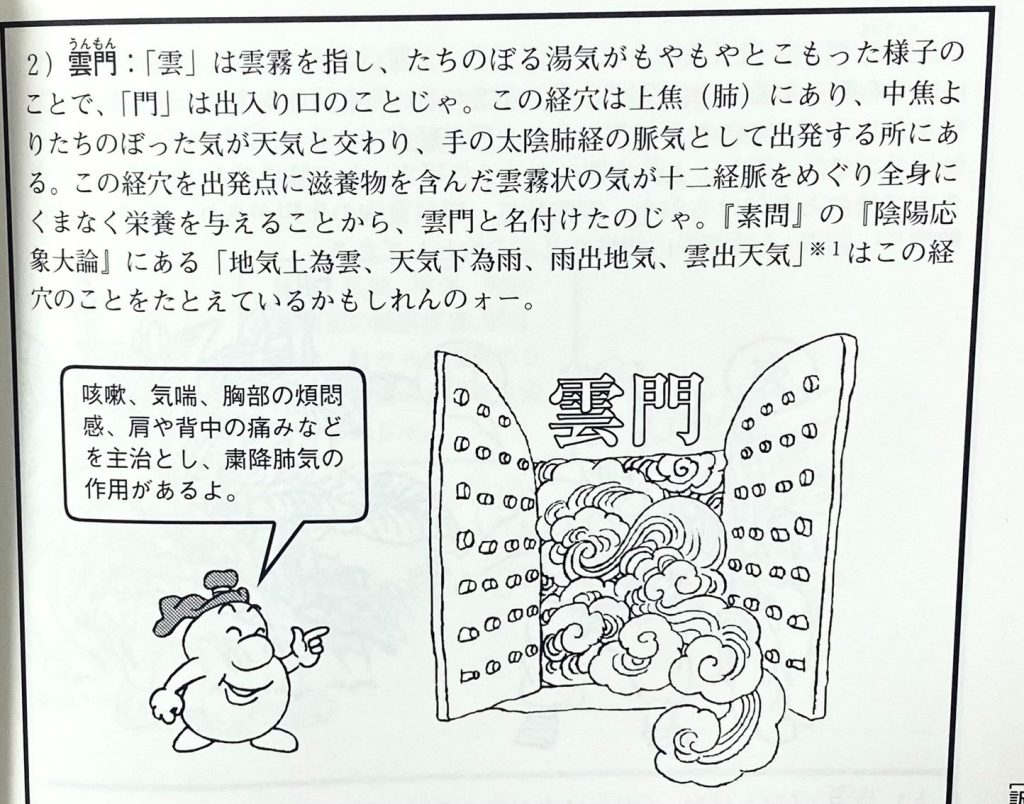 うんもん
2）雲門：「雲」は雲霧を指し、たちのぼる湯気がもやもやとこもった様子の
ことで、「門」は出入り口のことじゃ。この経穴は上焦（肺）にあり、中焦よ
りたちのぼった気が天気と交わり、手の太陰肺経の脈気として出発する所にあ
る。この経穴を出発点に滋養物を含んだ雲霧状の気が十二経脈をめぐり全身に
くまなく栄養を与えることから、雲門と名付けたのじゃ。『素問』の『陰陽応
象大論』にある「地気上為雲、天気下為雨、雨出地気、雲出天気」※1はこの経
穴のことをたとえているかもしれんのォー。
咳嗽、気喘、胸部の煩悶
感、肩や背中の痛みなど
を主治とし、粛降肺気の
作用があるよ。
雲門